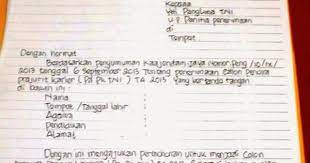 Kepada
Yth Panglima TNI
u.p Panitia penerimaan
di
Tempat.
Dengan hormat
Berdasarkan Pengumuman Kajenjan Jaya Nomor Peng /10/IX/
2013 tanggal 6 September 2013 Tentang penerimaan Calon Perwira
Prajurit karier ( Pa PK TNI ) TA 2013 yang bertanda tangan
di bawah ini :
Nama :
Tempat /Tanggal lahir :
Agama :
Pendidikan :
Alamat :
Dengan ini mengajukan permohonan untuk menjadi Calon